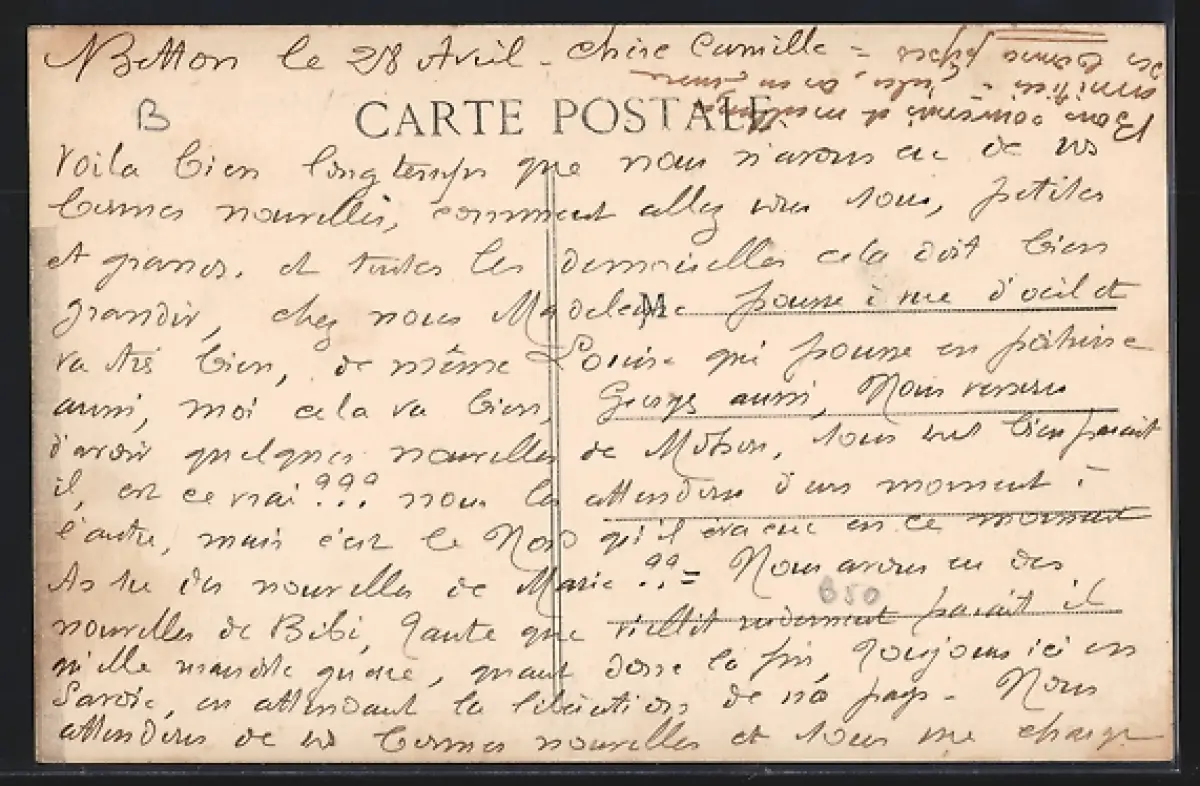 Betton le 28 Avril - chère Camille =
B
CARTE POSTALE
Voila bien longtemps que nous n'avons eu de vos
bonnes nouvelles, comment allez vous tous, petites
et grands, et toutes les demoiselles cela doit bien
grandir, chez nous Madeleine pousse à vue d'oeil et
M
va très bien, de même Louise qui pousse en
aussi, moi cela va bien, Georges aussi, Nous venons
d'avoir quelques nouvelles de, tous vont bien parait
il, est ce vrai ??? nous les attendons d'un moment à
l'autre, mais c'est le Nord qu'il évacue en ce moment
As tu des nouvelles de Marie ?? = Nous avons eu des
B50
nouvelles de Bibi, Tante que viellit rudement parait il
qu'elle marche guère, quant donc la fin, Toujours ici en
Savoie, en attendant la libération de no pays - Nous
attendons de vos bonnes nouvelles et tous me charge
Bons souvenirs et
amitiés =
de bonne